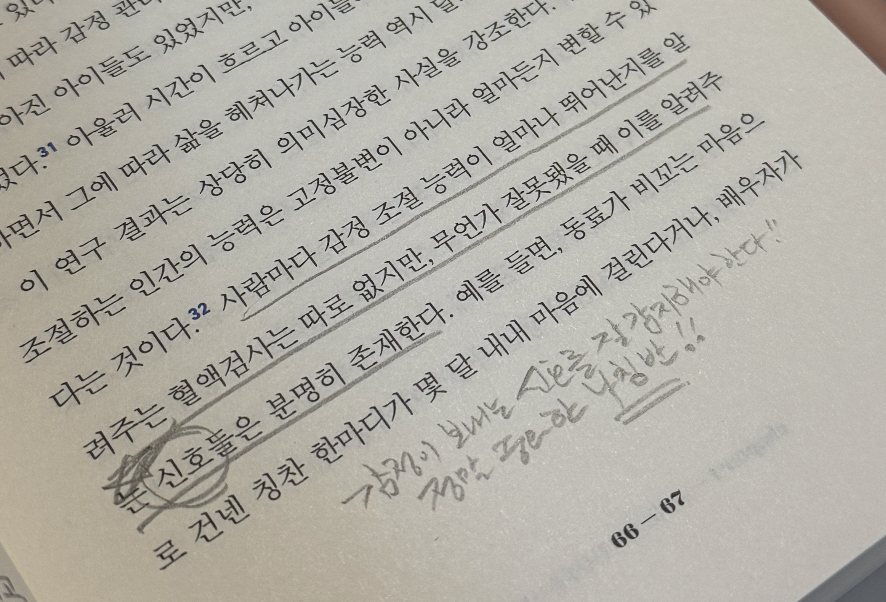 따라 감정 관리
아진 아이들도 있었지만,
였다.31 아울러 시간이 흐르고 아이들
하면서 그에 따라 삶을 헤쳐나가는 능력 역시
이 연구 결과는 상당히 의미심장한 사실을 강조한다.
조절하는 인간의 능력은 고정불변이 아니라 얼마든지 변할 수 있
다는 것이다.32 사람마다 감정 조절 능력이 얼마나 뛰어난지를 알
려주는 혈액검사는 따로 없지만, 무언가 잘못됐을 때 이를 알려주
는 신호들은 분명히 존재한다. 예를 들면, 동료가 비꼬는 마음으
로 건넨 칭찬 한마디가 몇 달 내내 마음에 걸린다거나, 배우자가
감정이 보내는 신호를 잘 감지해야 한다!!
정말 중요한 나침반!!
66 — 67